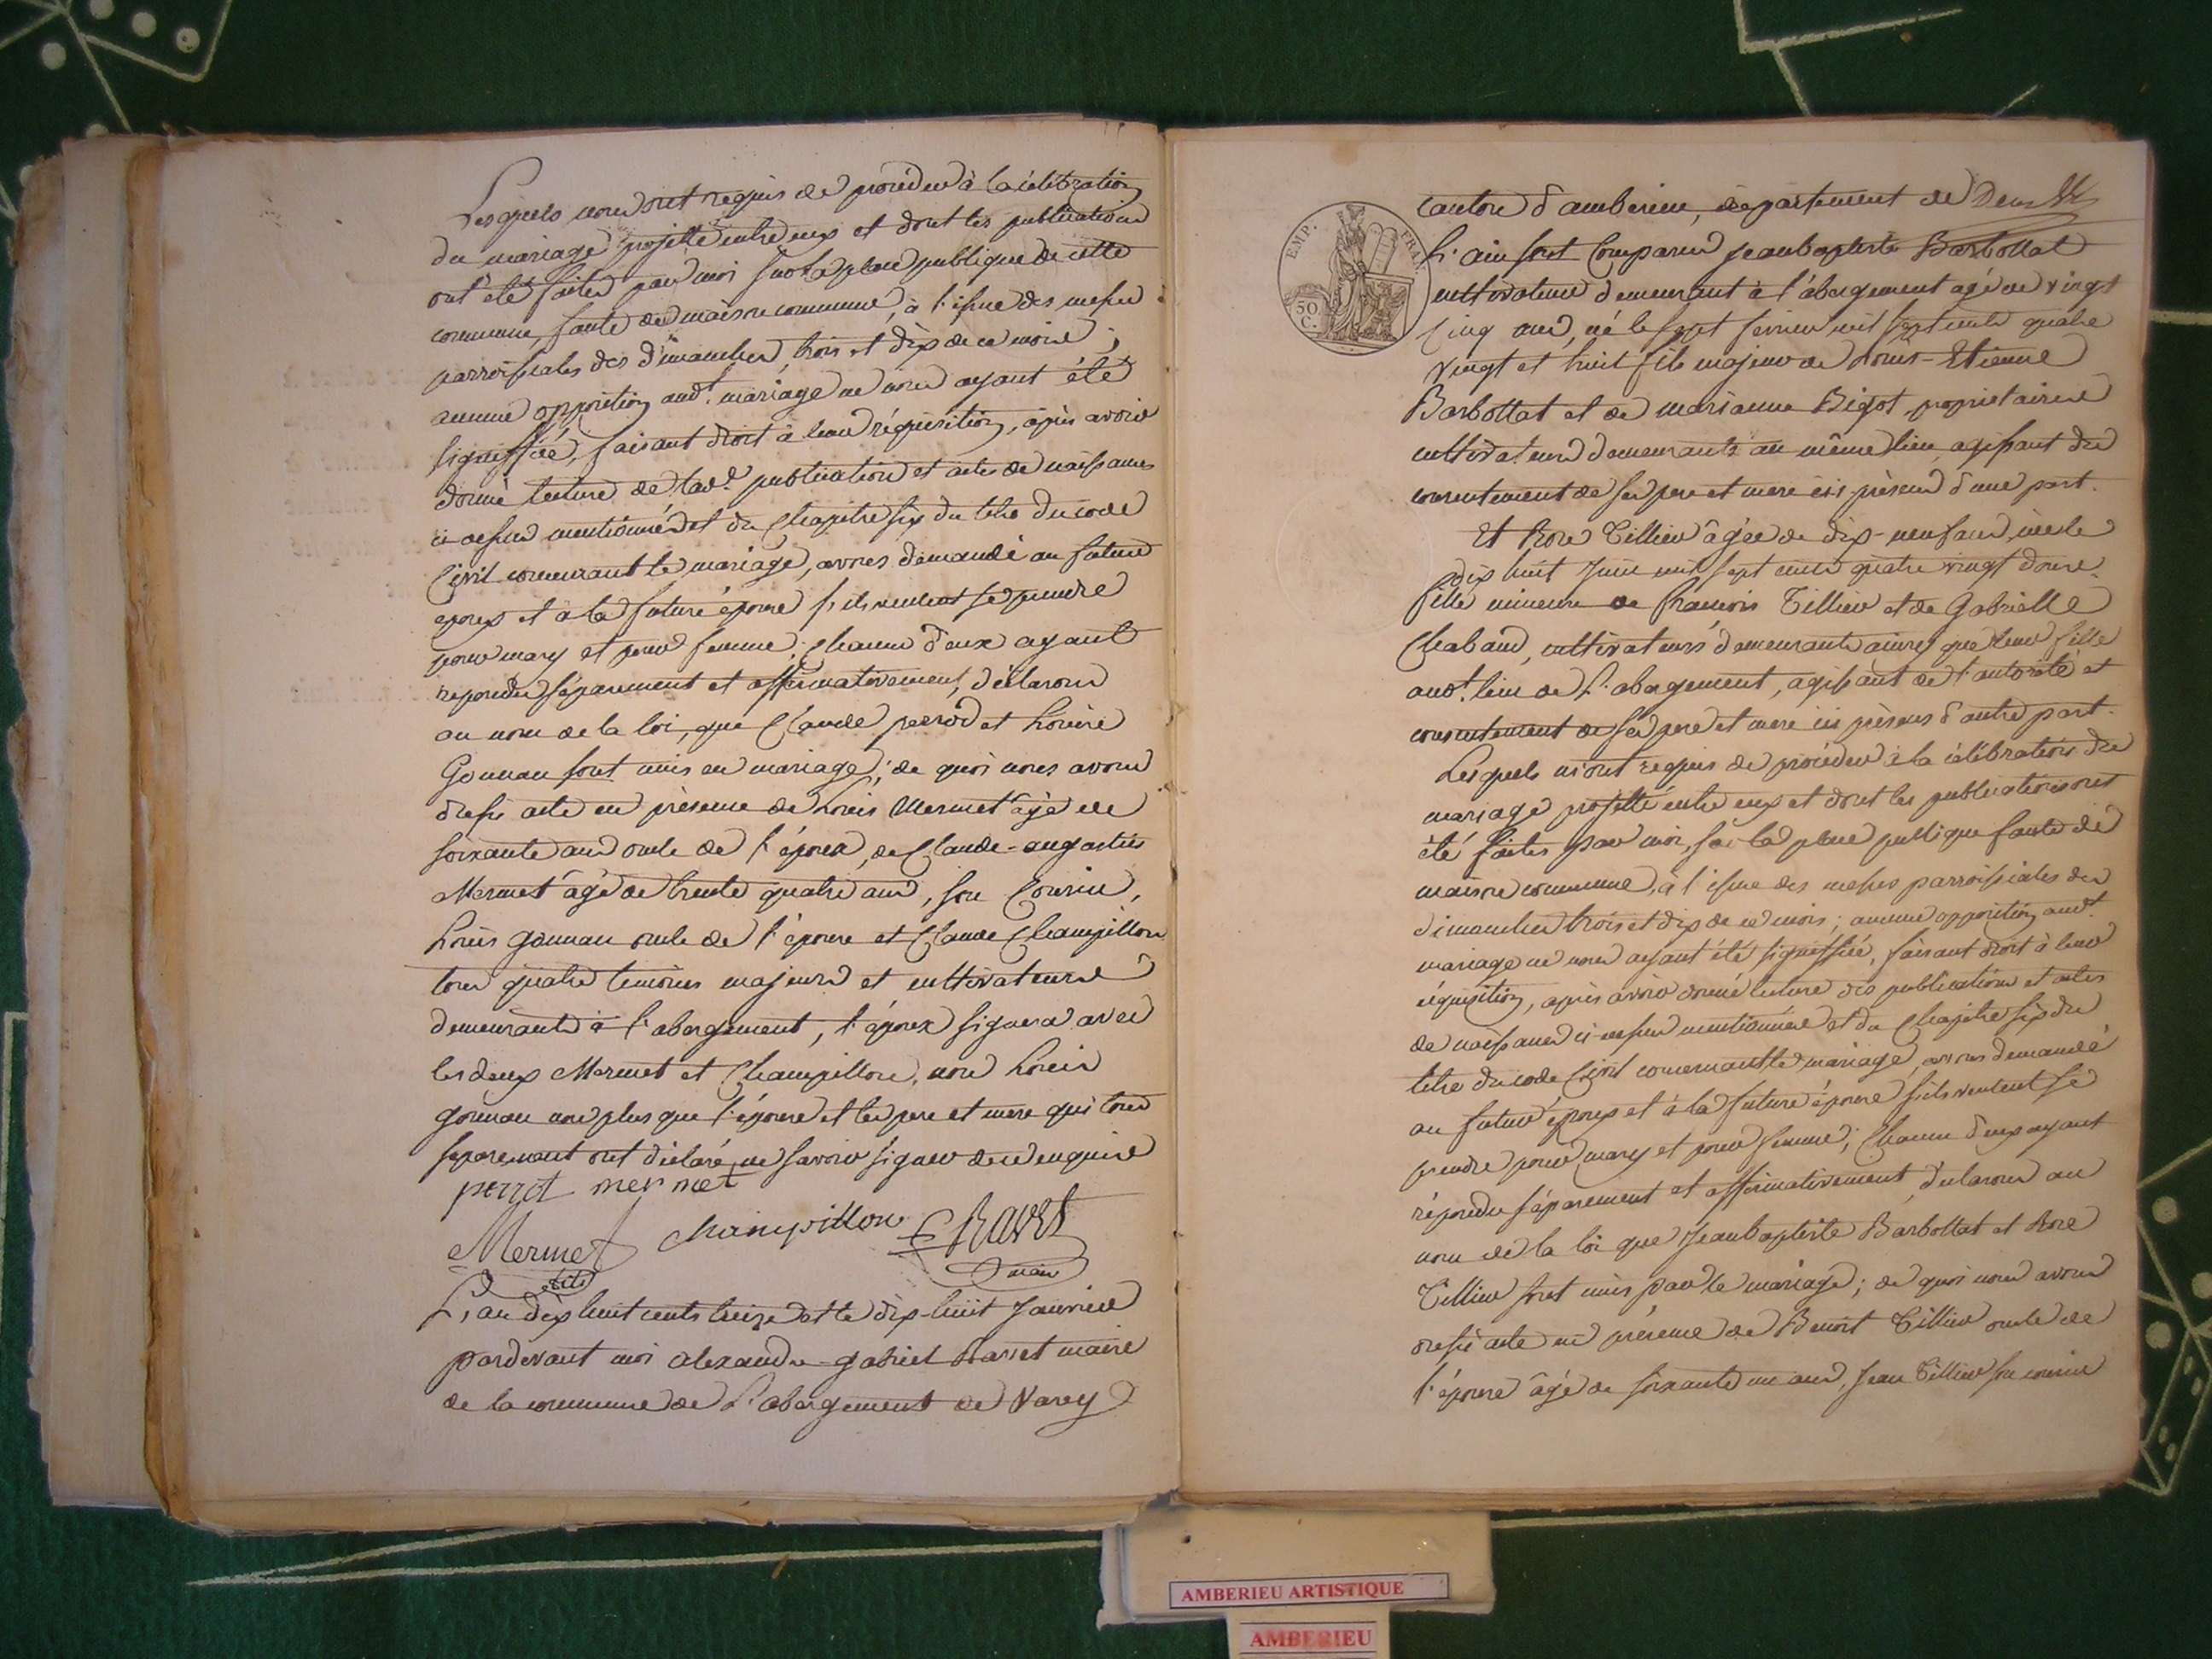 Lesquels nous ont requis de procéder à la célébration
du mariage projetté entre eux et dont les publications
ont été faites par moi sur la place publique de cette
commune, faute de maison commune, à l'issue des messes
parroissiales des dimanches trois et dix de ce mois;
aucune opposition aud.t mariage ne nous ayant été
signiffiée, faisant droit à leur réquisition, après avoir
donné lecture de lad.e publication et actes de naissances
ci dessus mentionnés et du Chapitre six du titre du code
Civil concernant le mariage, avons demandé au futur
epoux et à la future épouse s'ils veulent se prendre
pour mary et pour femme; chacun d'eux ayant
repondu séparement et affirmativement, déclarons
au nom de la loi, que Claude perrod et Louise
Gounau sont unis en mariage; de quoi nous avons
dressé acte en présence de Louis Mermet âgé de
soixante ans oncle de l'époux, de Claude-augustin
Mermet âgé de trente quatre ans, son Cousin,
Louis gounau oncle de l'épouse et Claude Champillon
tous quatre temoins majeurs et cultivateurs
demeurants à l'abergement, l'époux signera avec
les deux Mermet et Champillon, non Louis
gounau non plus que l'épouse et les pere et mere qui tous
séparement ont déclaré ne savoir signer de ce enquis
perrot mermet
Mermet Champillon Ravet
maire
L'an dix huit cents treize et le dix-huit Janvier
pardevant moi alexandre-gabriel Ravet maire
de la commune de L'abergement de Varey
canton d'amberieu, département de Deux
EMP. FRA.
50 C.
L'ain sont Comparus jean baptiste Barbollat
cultivateur demeurant à l'abergement agé de vingt
Cinq ans, né le sept fevrier mil sept cents quatre
vingt et huit fils majeur de Louis-Etienne
Barbollat et de marianne Bigot, proprietaires
cultivateurs demeurants au même lieu, agissant du
consentement de ses pere et mere ici présens d'une part.
Et Rose Tillier âgée de dix-neuf ans, née le
dix huit Juin mil sept cents quatre vingt douze
fille mineure de francois Tillier et de Gabrielle
Chabaud, cultivateurs demeurants ainsy que leur fille
aud.t lieu de L'abergement, agissant de l'autorité et
consentement de ses pere et mere ici présens d'autre part.
Lesquels m'ont requis de procéder à la célébration du
mariage projetté entre eux et dont les publications ont
été faites par moi, sur la place publique faute de
maison commune, à l'issue des messes parroissiales des
dimanches trois et dix de ce mois; aucune opposition aud.t
mariage ne nous ayant été signiffiée, faisant droit à leur
réquisition, après avoir donné lecture des publications et actes
de naissances ci-dessus mentionnées et du Chapitre six du
titre du code Civil concernant le mariage, avons demandé
au futur époux et à la future épouse s'ils veulent se
prendre pour mary et pour femme; Chacun d'eux ayant
répondu séparement et affirmativement, déclarons au
nom de la loi que Jean baptiste Barbollat et Rose
Tillier sont unis par le mariage; de quoi nous avons
dressé acte en présence de Benoit Tillier oncle de
l'épouse âgé de soixante un ans, Jean Tillier son cousin
AMBERIEU ARTISTIQUE
AMBERIEU